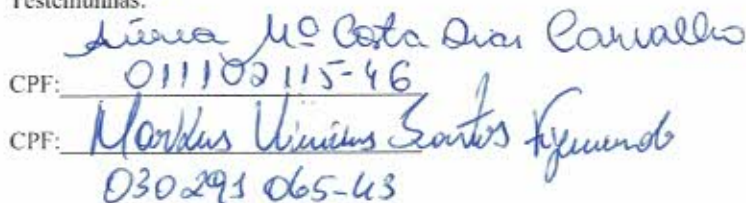 Testemunhas:
Mª Costa Dias Carvalho
CPF: 011102115-46
CPF: Markus Vinicius Santos Figueiredo
030291065-43